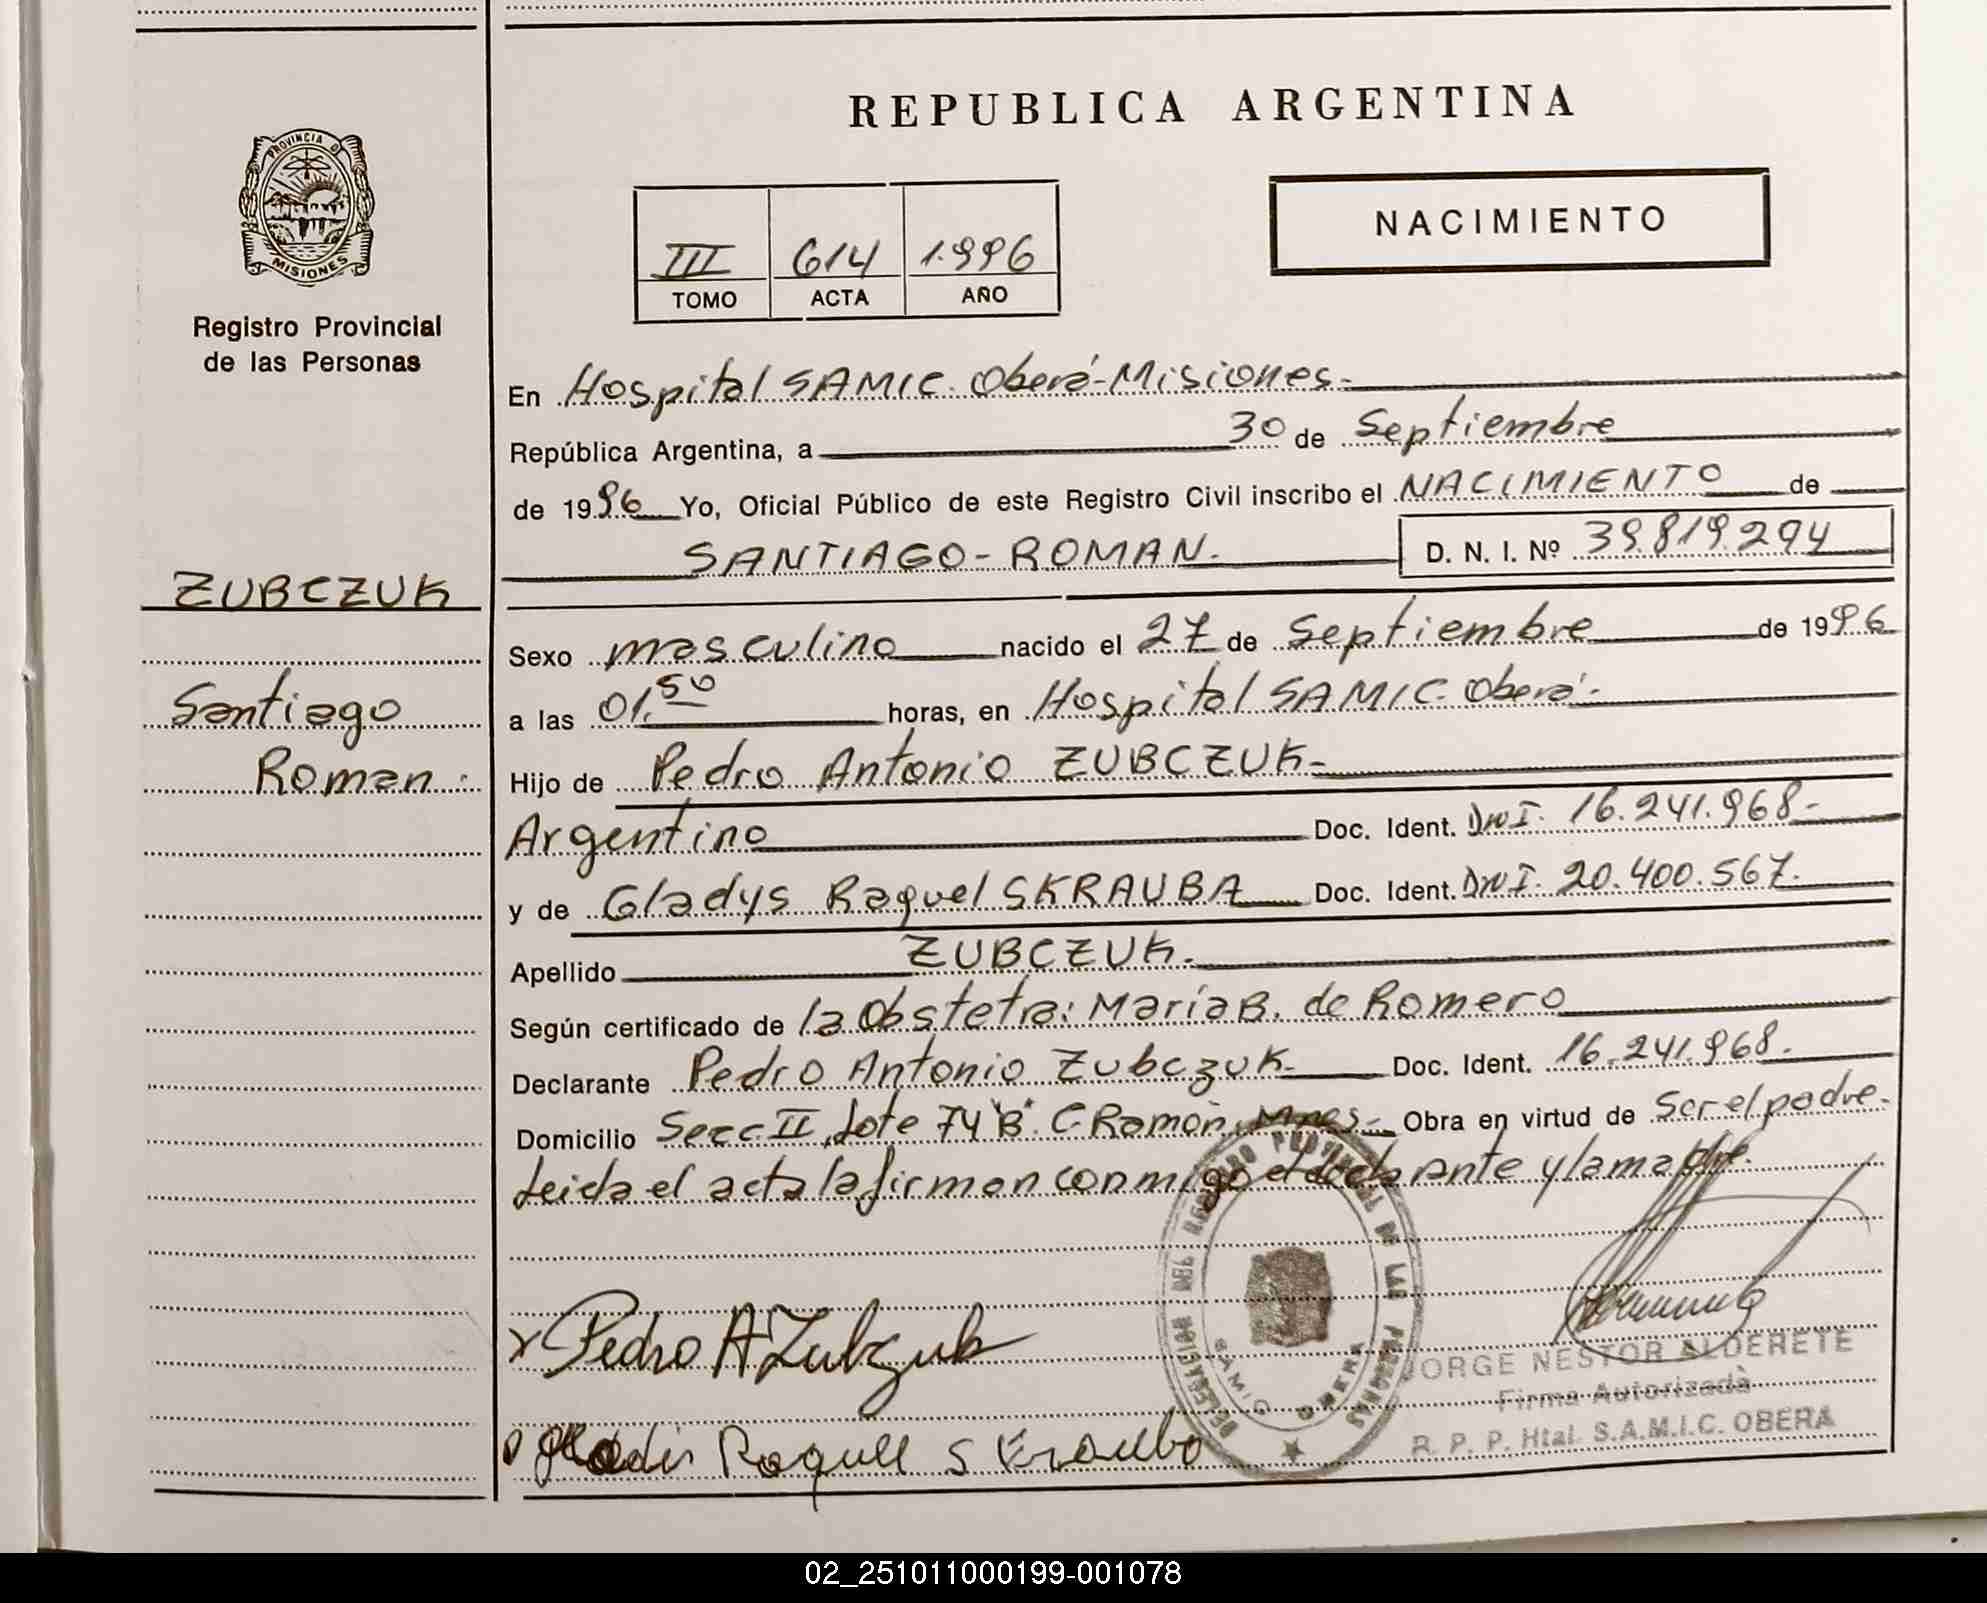 REPUBLICA ARGENTINA
PROVINCIA DE
MISIONES
Registro Provincial
de las Personas
NACIMIENTO
III 614 1.996
TOMO ACTA AÑO
En Hospital SAMIC. Oberá-Misiones.
República Argentina, a 30 de Septiembre
de 1996 Yo, Oficial Público de este Registro Civil inscribo el NACIMIENTO de
SANTIAGO-ROMAN. D. N. I. Nº 39.819.294
ZUBCZUK
Santiago
Roman.
Sexo masculino nacido el 27 de Septiembre de 1996
a las 01.50 horas, en Hospital SAMIC. Oberá.
Hijo de Pedro Antonio ZUBCZUK-
Argentino Doc. Ident. DNI. 16.241.968-
y de Gladys Raquel SKRAUBA Doc. Ident. DNI. 20.400.567.
Apellido ZUBCZUK.
Según certificado de la Obstetra: Maria B. de Romero
Declarante Pedro Antonio Zubczuk- Doc. Ident. 16.241.968.
Domicilio Secc. II, Lote 74 "B" C. Ramón, Mnes- Obra en virtud de Ser el padre-
Leida el acta la firman conmigo el declarante y la madre.
DELEGACION DEL REGISTRO PROVINCIAL DE LAS PERSONAS
SAMIC OBERA
Pedro A Zubczuk
Raquel Skrauba
JORGE NESTOR ALDERETE
Firma Autorizada
R. P. P. Htal. S.A.M.I.C. OBERA
02_251011000199-001078